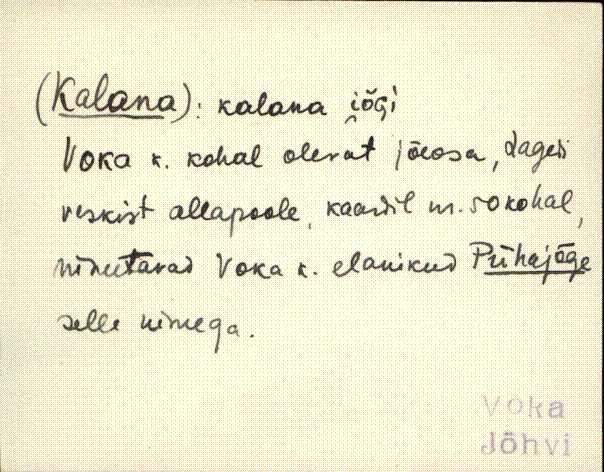 (Kalana): kalana jõgi
Voka k. kohal olevat jõeosa, Lagedi
veskist allapoole, kaardil nr. 50 kohal,
nimetavad Voka k. elanikud Pühajõge
selle nimega.
Voka
Jõhvi